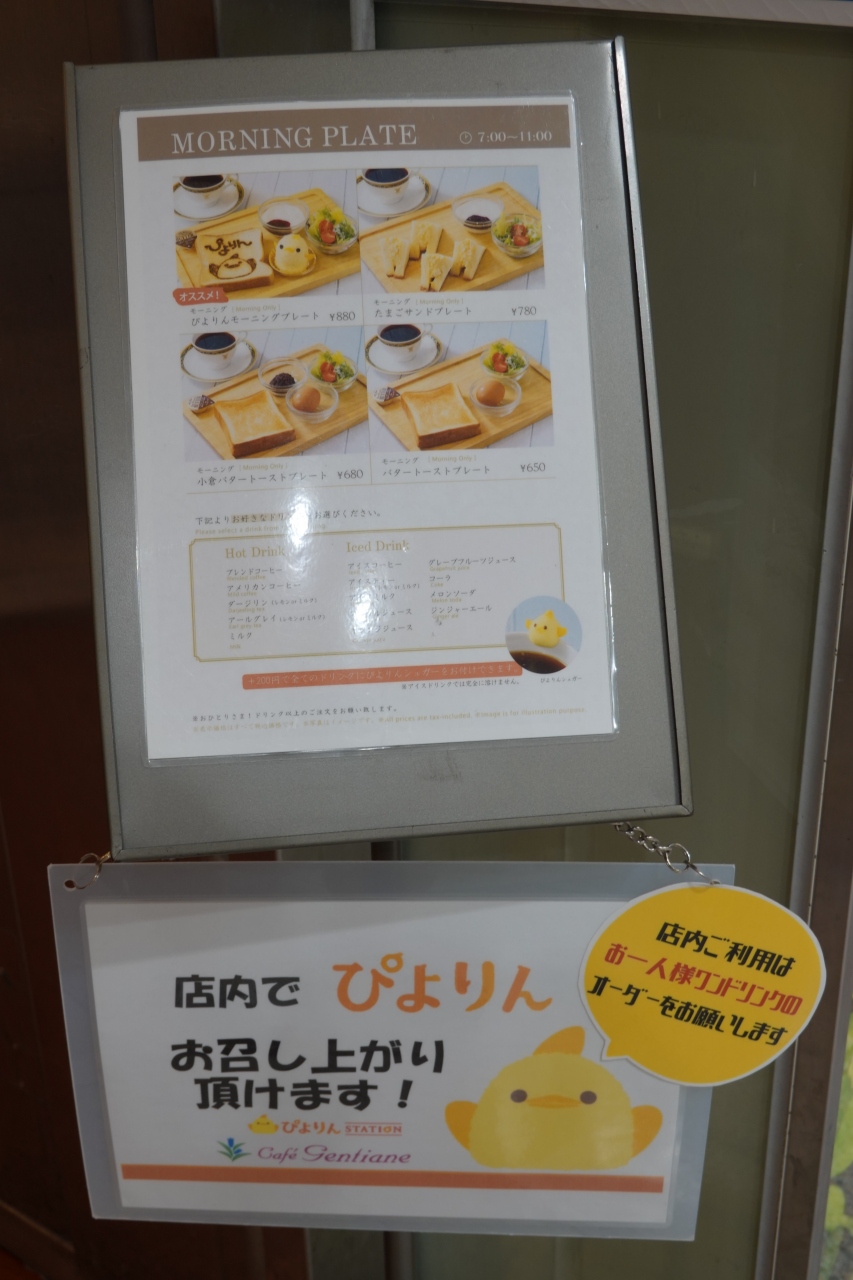 MORNING PLATE
7:00〜11:00
ぴよりん
オススメ!
モーニング (Morning Only)
ぴよりんモーニングプレート ¥880
モーニング (Morning Only)
たまごサンドプレート ¥780
モーニング (Morning Only)
小倉バタートーストプレート ¥680
モーニング (Morning Only)
バタートーストプレート ¥650
下記よりお好きなドリ お選びください。
Please select a drink
Hot Drink
ブレンドコーヒー
アメリカンコーヒー
ダージリン (レモン or ミルク)
アールグレイ (レモン or ミルク)
ミルク
Iced Drink
アイスコーヒー
アイスティー
ルク
ジュース
ジュース
グレープフルーツジュース
コーラ
メロンソーダ
ジンジャーエール
+200円で全てのドリンクにぴよりんシュガーをお付けできます。
※アイスドリンクでは完全に溶けません。
ぴよりんシュガー
※おひとりさま1ドリンク以上のご注文をお願い致します。
※all prices are tax-included. ※image is for illustration purpose
店内で ぴよりん
お召し上がり
頂けます!
ぴよりん STATION
Café Gentiane
店内ご利用は
お一人様ワンドリンクの
オーダーをお願いします